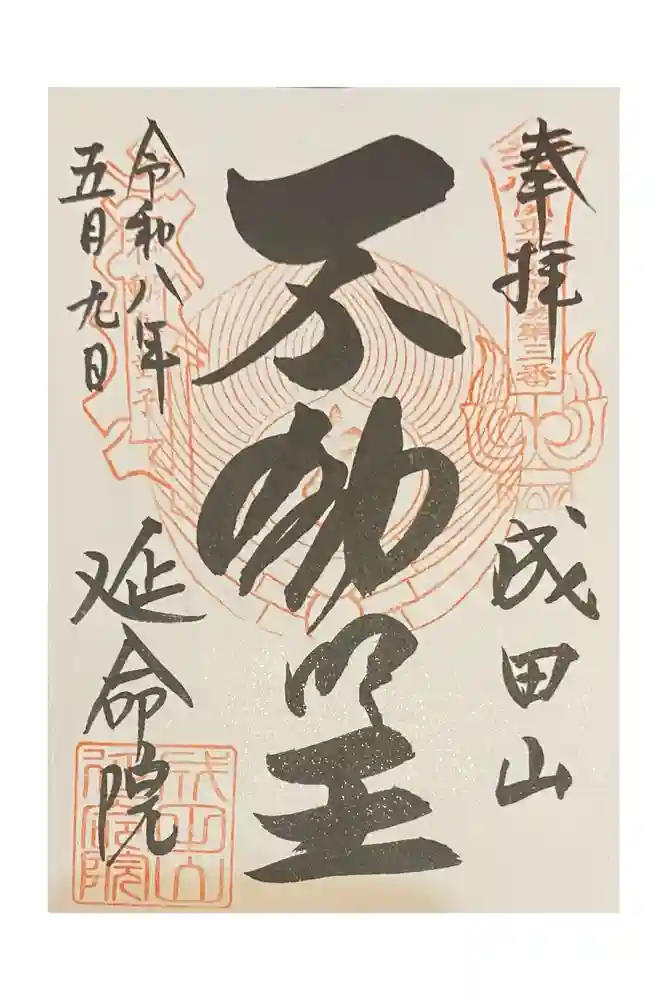 奉拝
成田山
不動明王
令和八年
五月九日
延命院
成田山
延命院